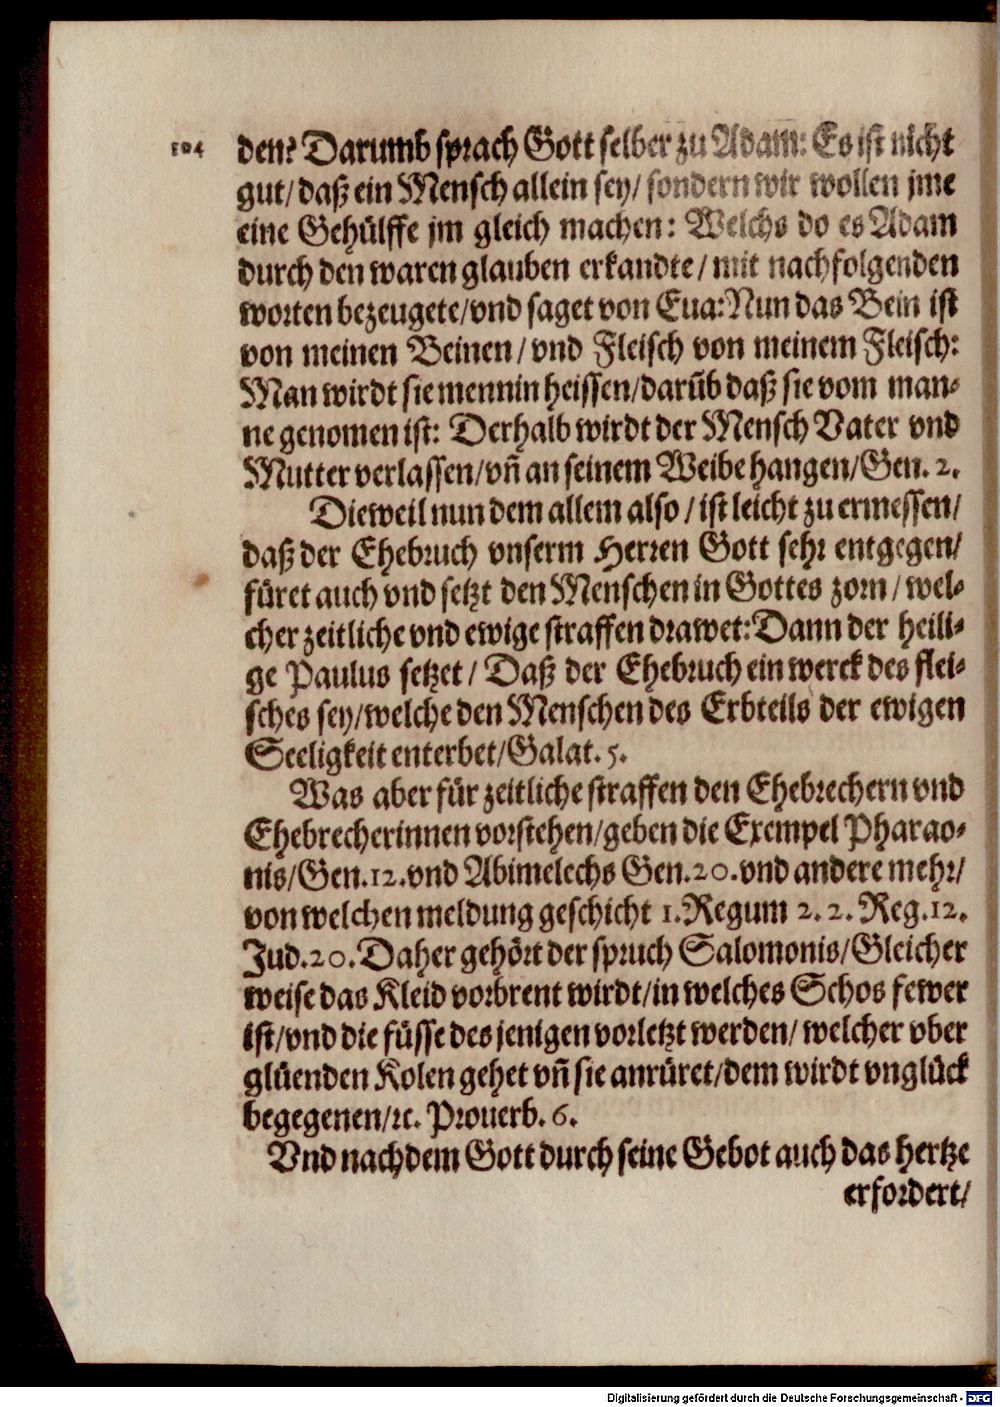 104
den? Darumb sprach Gott selber zu Adam: Es ist nicht
gut/ daß ein Mensch allein sey/ sondern wir wollen jme
eine Gehülffe jm gleich machen: Welchs do es Adam
durch den waren glauben erkandte/ mit nachfolgenden
worten bezeugete/ vnd saget von Eua: Nun das Bein ist
von meinen Beinen/ vnd Fleisch von meinem Fleisch:
Man wirdt sie mennin heissen/ darūb daß sie vom man-
ne genomen ist: Derhalb wirdt der Mensch Vater vnd
Mutter verlassen/ vñ an seinem Weibe hangen/ Gen. 2.
Dieweil nun dem allem also/ ist leicht zu ermessen/
daß der Ehebruch vnserm Herren Gott sehr entgegen/
füret auch vnd setzt den Menschen in Gottes zorn/ wel-
cher zeitliche vnd ewige straffen drawet: Dann der heili-
ge Paulus setzet/ Daß der Ehebruch ein werck des flei-
sches sey/ welche den Menschen des Erbteils der ewigen
Seeligkeit enterbet/ Galat. 5.
Was aber für zeitliche straffen den Ehebrechern vnd
Ehebrecherinnen vorstehen/ geben die Exempel Pharao-
nis/ Gen. 12. vnd Abimelechs Gen. 20. vnd andere mehr/
von welchen meldung geschicht 1. Regum 2. 2. Reg. 12.
Jud. 20. Daher gehört der spruch Salomonis/ Gleicher
weise das Kleid vorbrent wirdt/ in welches Schos fewer
ist/ vnd die füsse des jenigen vorletzt werden/ welcher vber
glüenden Kolen gehet vñ sie anrüret/ dem wirdt vnglück
begegenen/ ꝛc. Prouerb. 6.
Vnd nachdem Gott durch seine Gebot auch das hertze
erfordert/
Digitalisierung gefördert durch die Deutsche Forschungsgemeinschaft - DFG